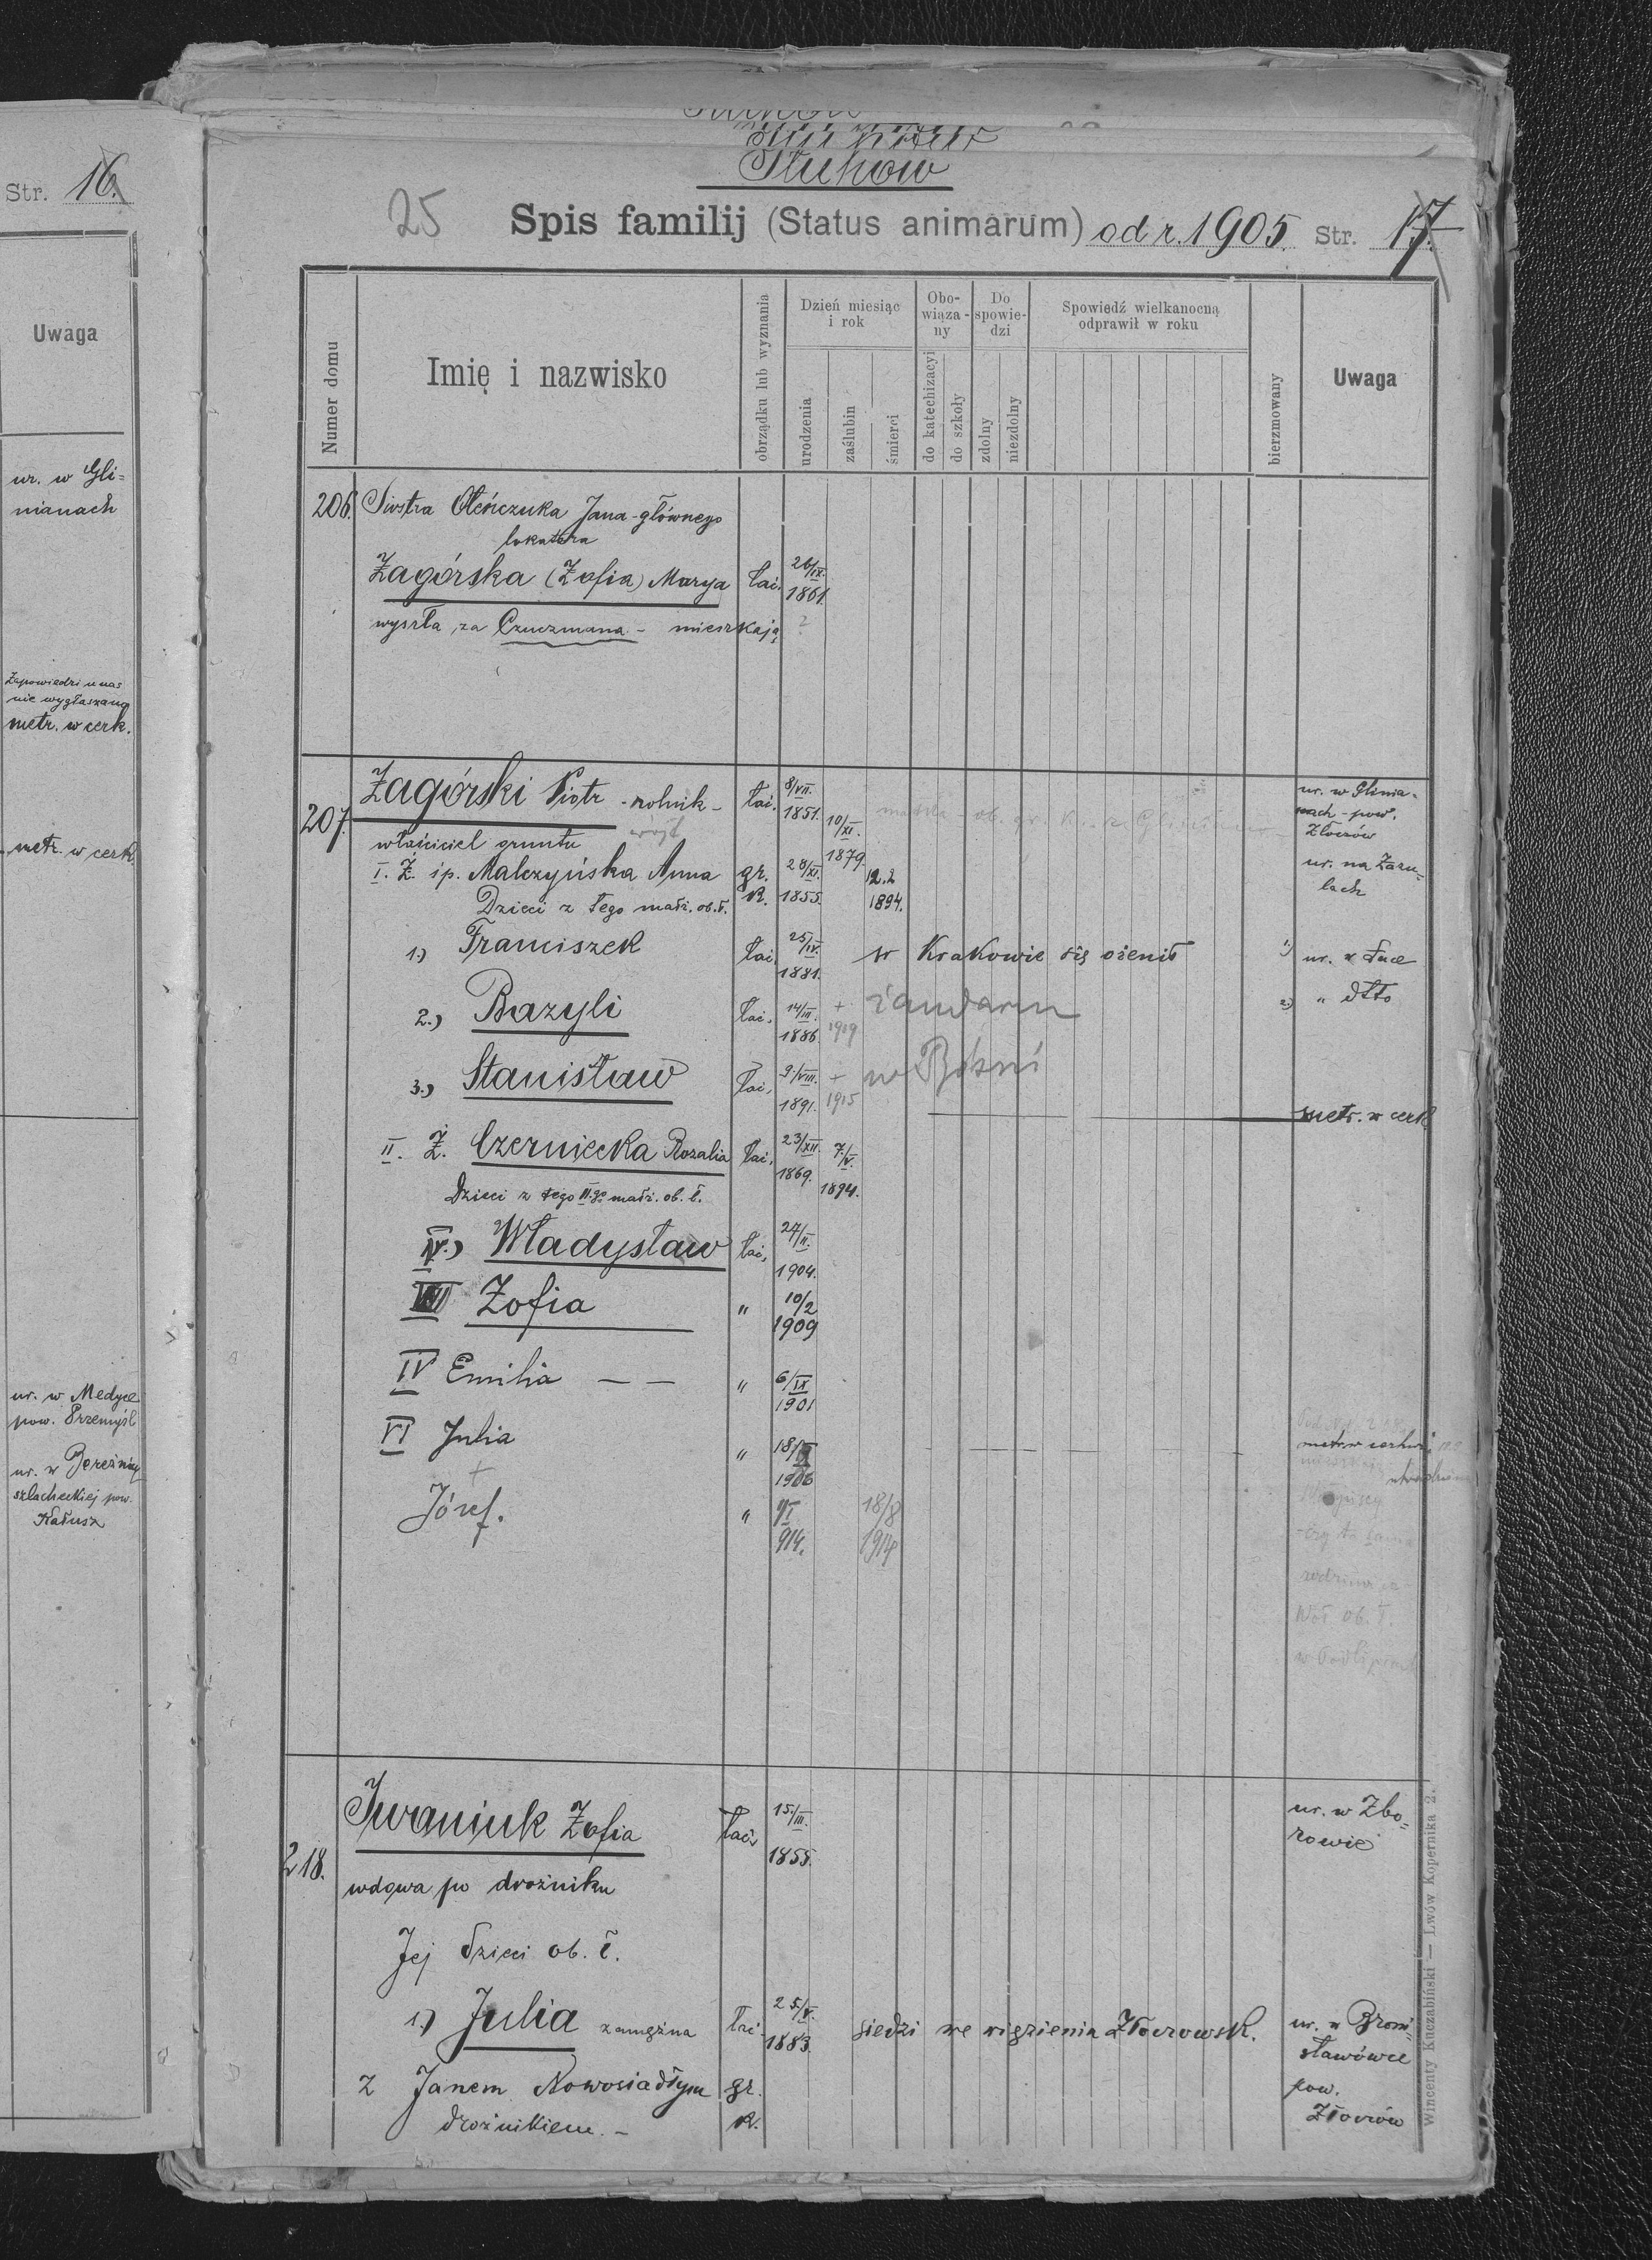 Str. 16.
Uwaga
ur. w Gli=
nianach
Zapowiedzi u nas
nie wygłaszano
metr. w cerk.
metr. w cerk
ur. w Medyce
pow. Przemyśl
ur. w Bereźnicy
szlacheckiej pow.
Kałusz
Stuków
25 Spis familij (Status animarum) od r. 1905. Str. 17.
Numer domu
Imię i nazwisko
obrządku lub wyznania
Dzień miesiąc i rok
urodzenia
zaślubin
śmierci
Obo-wiąza-ny
do katechizacyi
do szkoły
Do spowie-dzi
zdolny
niezdolny
Spowiedź wielkanocną odprawił w roku
bierzmowany
Uwaga
206. Siostra Oleńczuka Jana - głównego
lokatora
Zagórska (Zofia) Marya łać. 26/IX. 1861.
wyszła za Czuczmana - mieszkają ?
207. Zagórski Piotr - rolnik - łać. 8/VII. 1851. 10/XI. 1879. ur. w Glinia-
nach - pow.
Złoczów
właściciel gruntu wójt
I. Ż. śp. Malczyńska Anna gr. K. 28/XI. 1855. 12.2 1894. ur. na Zaru=
lach
Dzieci z tego małż. ob. ł.
1.) Franciszek łać. 25/IV. 1881. w Krakowie się ożenił 1) ur. w Łuce
2.) Bazyli łać. 14/III. 1886. + 1919 żandarm 2) " dtto
3.) Stanisław łać. 9/VIII. 1891. + 1915 w Bośni
metr. w cerk.
II. Ż. Czerniecka Rozalia łać. 23/XII. 1869. 7/V. 1894.
Dzieci z tego II-go małż. ob. ł.
V.) Władysław łać. 27/II. 1904.
VII Zofia " 10/2 1909
IV Emilia — — " 6/IX 1901
VI Julia " 18/ 1906 metr w cerkwi
+
Józef. " 914. 18/8 1914
czy ta sama
ob. ł.
218. Iwaniuk Zofia łać. 15/III. 1855. ur. w Zbo=
rowie
wdowa po drożniku
Jej dzieci ob. ł.
1.) Julia zamężna łać. 25/V. 1883. siedzi we więzieniu Złoczowsk. ur. w Broni=
sławówce
z Janem Nowosiadłym gr. K. pow.
drożnikiem. - Złoczów
Wincenty Kuczabiński — Lwów Kopernika 2.